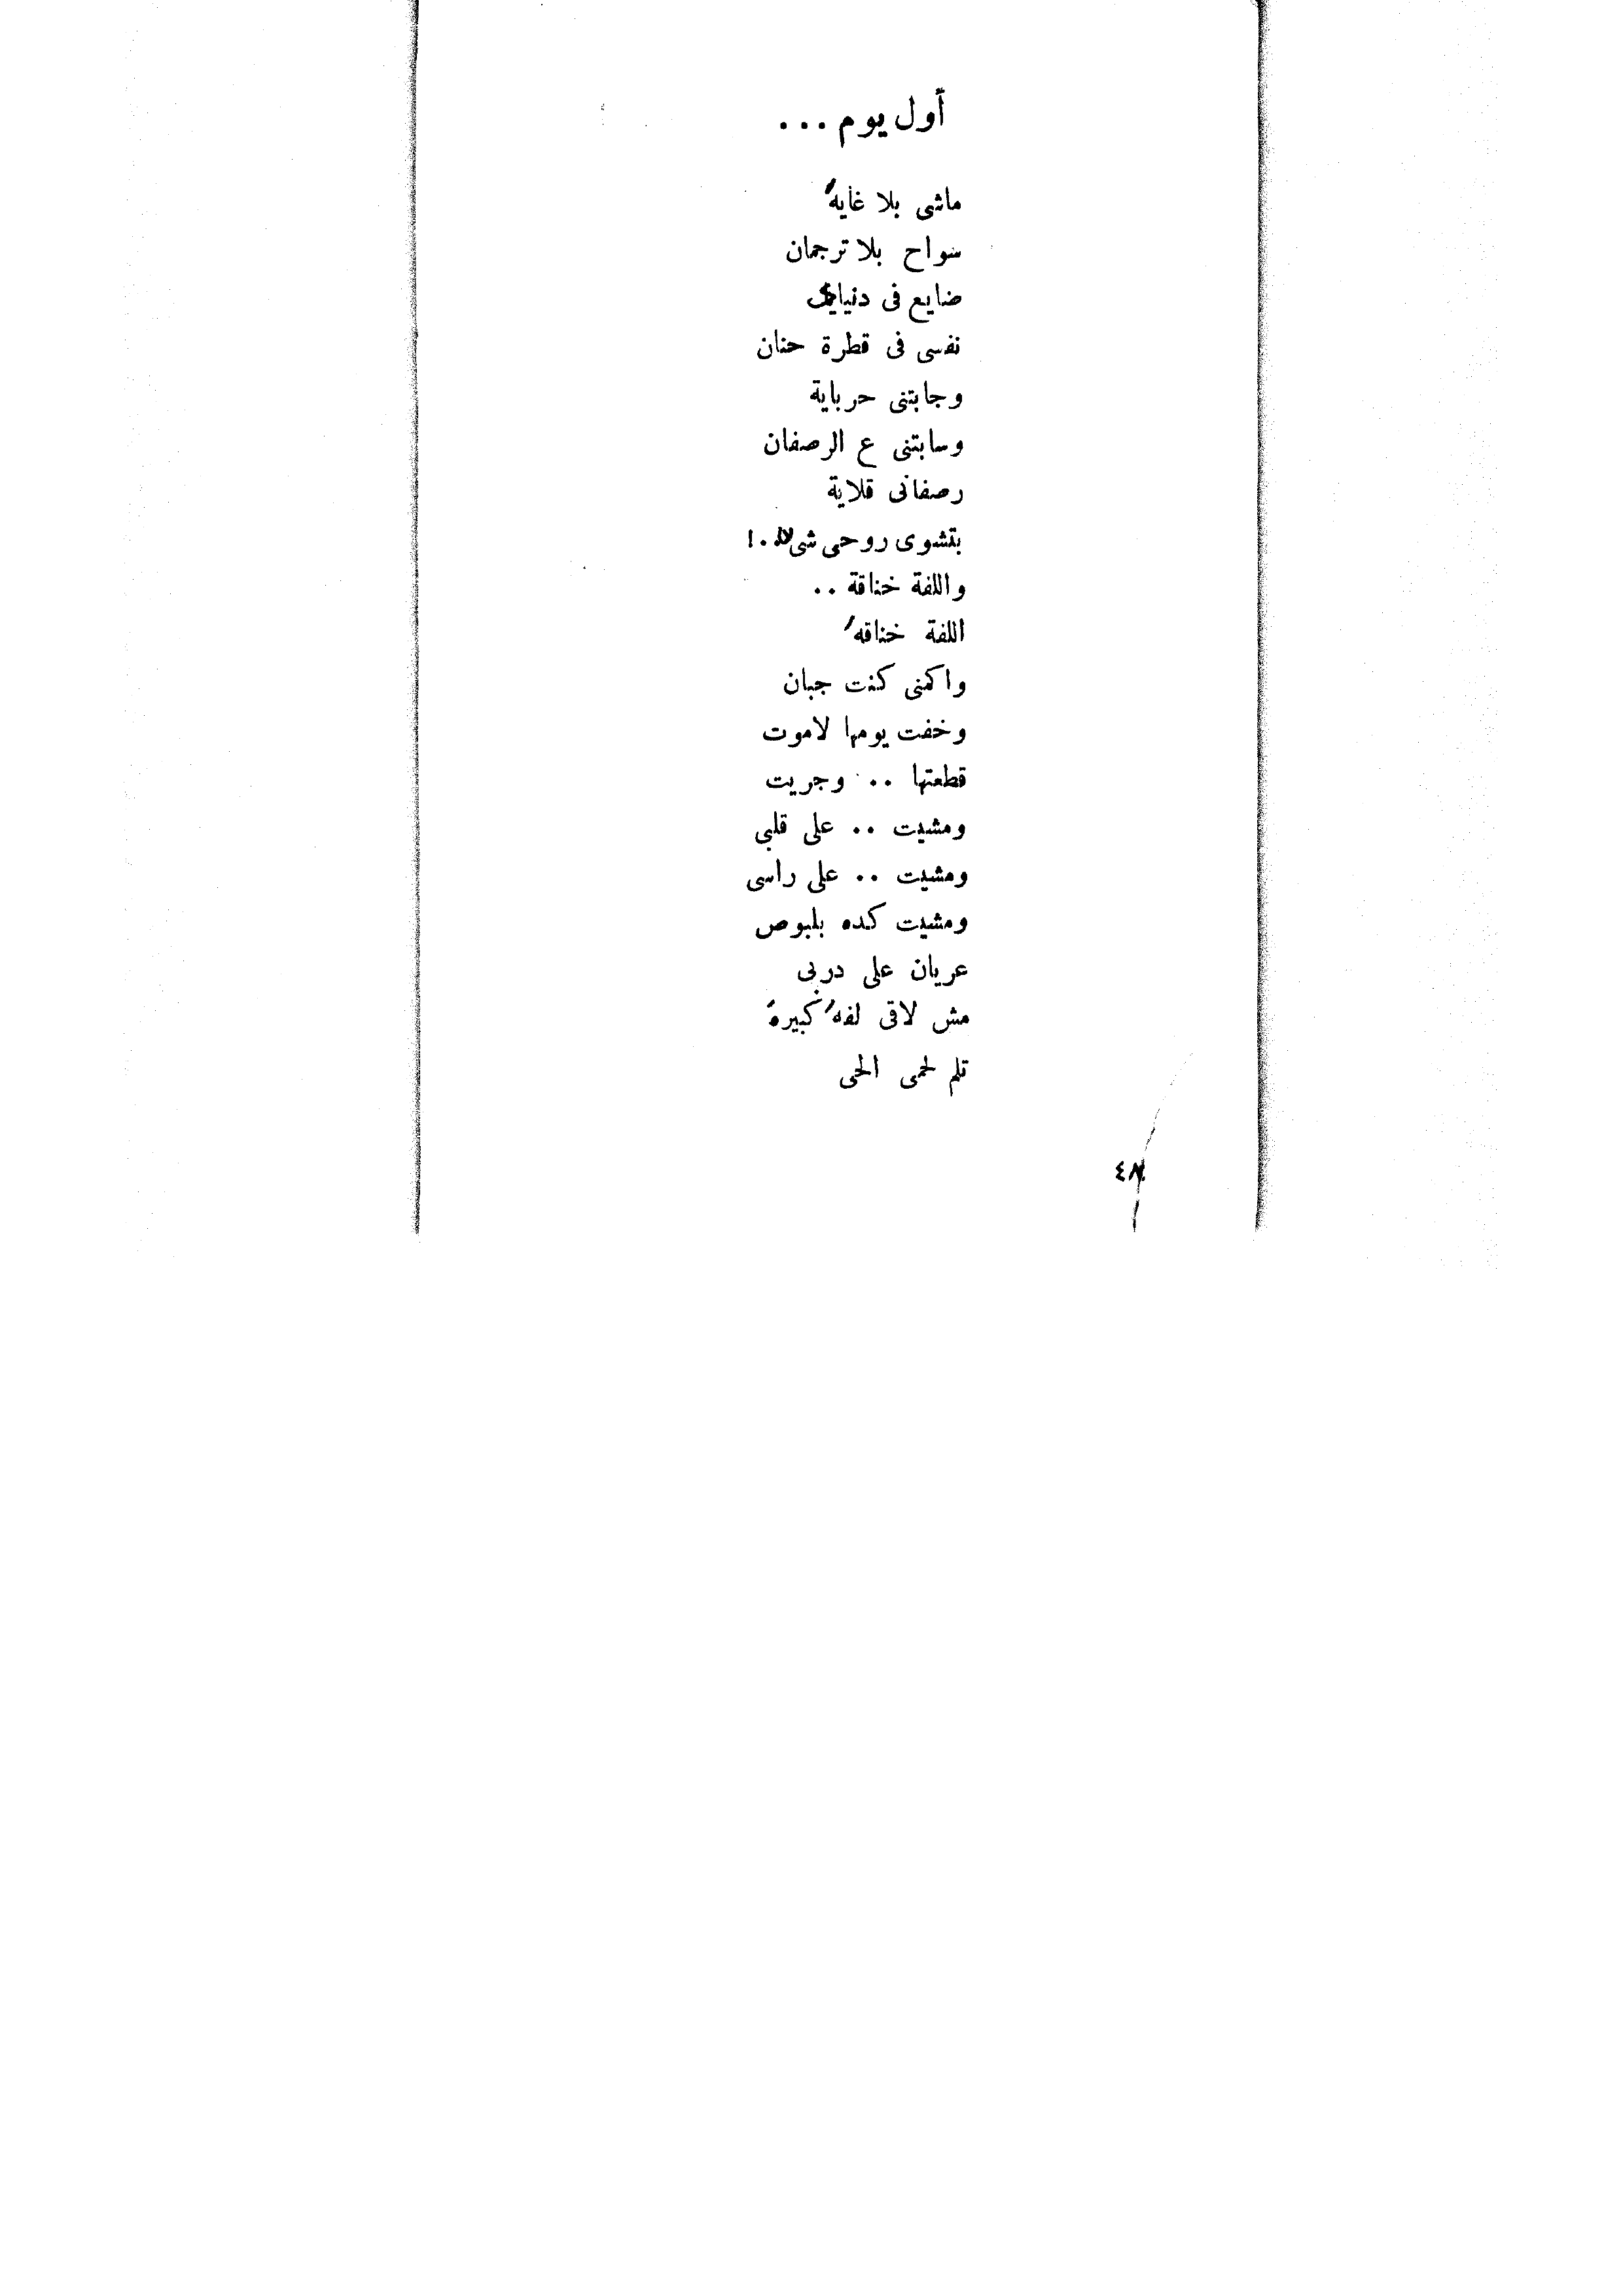 أول يوم ...
ماشى بلا غايه
سواح بلا ترجمان
ضايع فى
نفسى فى قطرة حنان
وجابتنى حرباية
وسابتنى ع الرصفان
رصفانى قلاية
بتشوى روحى
واللفة خناقة ..
اللفة خناقه
واكمنى كنت جبان
وخفت يومها لاموت
قطعتها .. وجريت
ومشيت .. على قلبى
ومشيت .. على راسى
ومشيت كده بلبوص
عريان على دربى
مش لاقى لفه كبيره
تلم لحمى الحى
٤٨